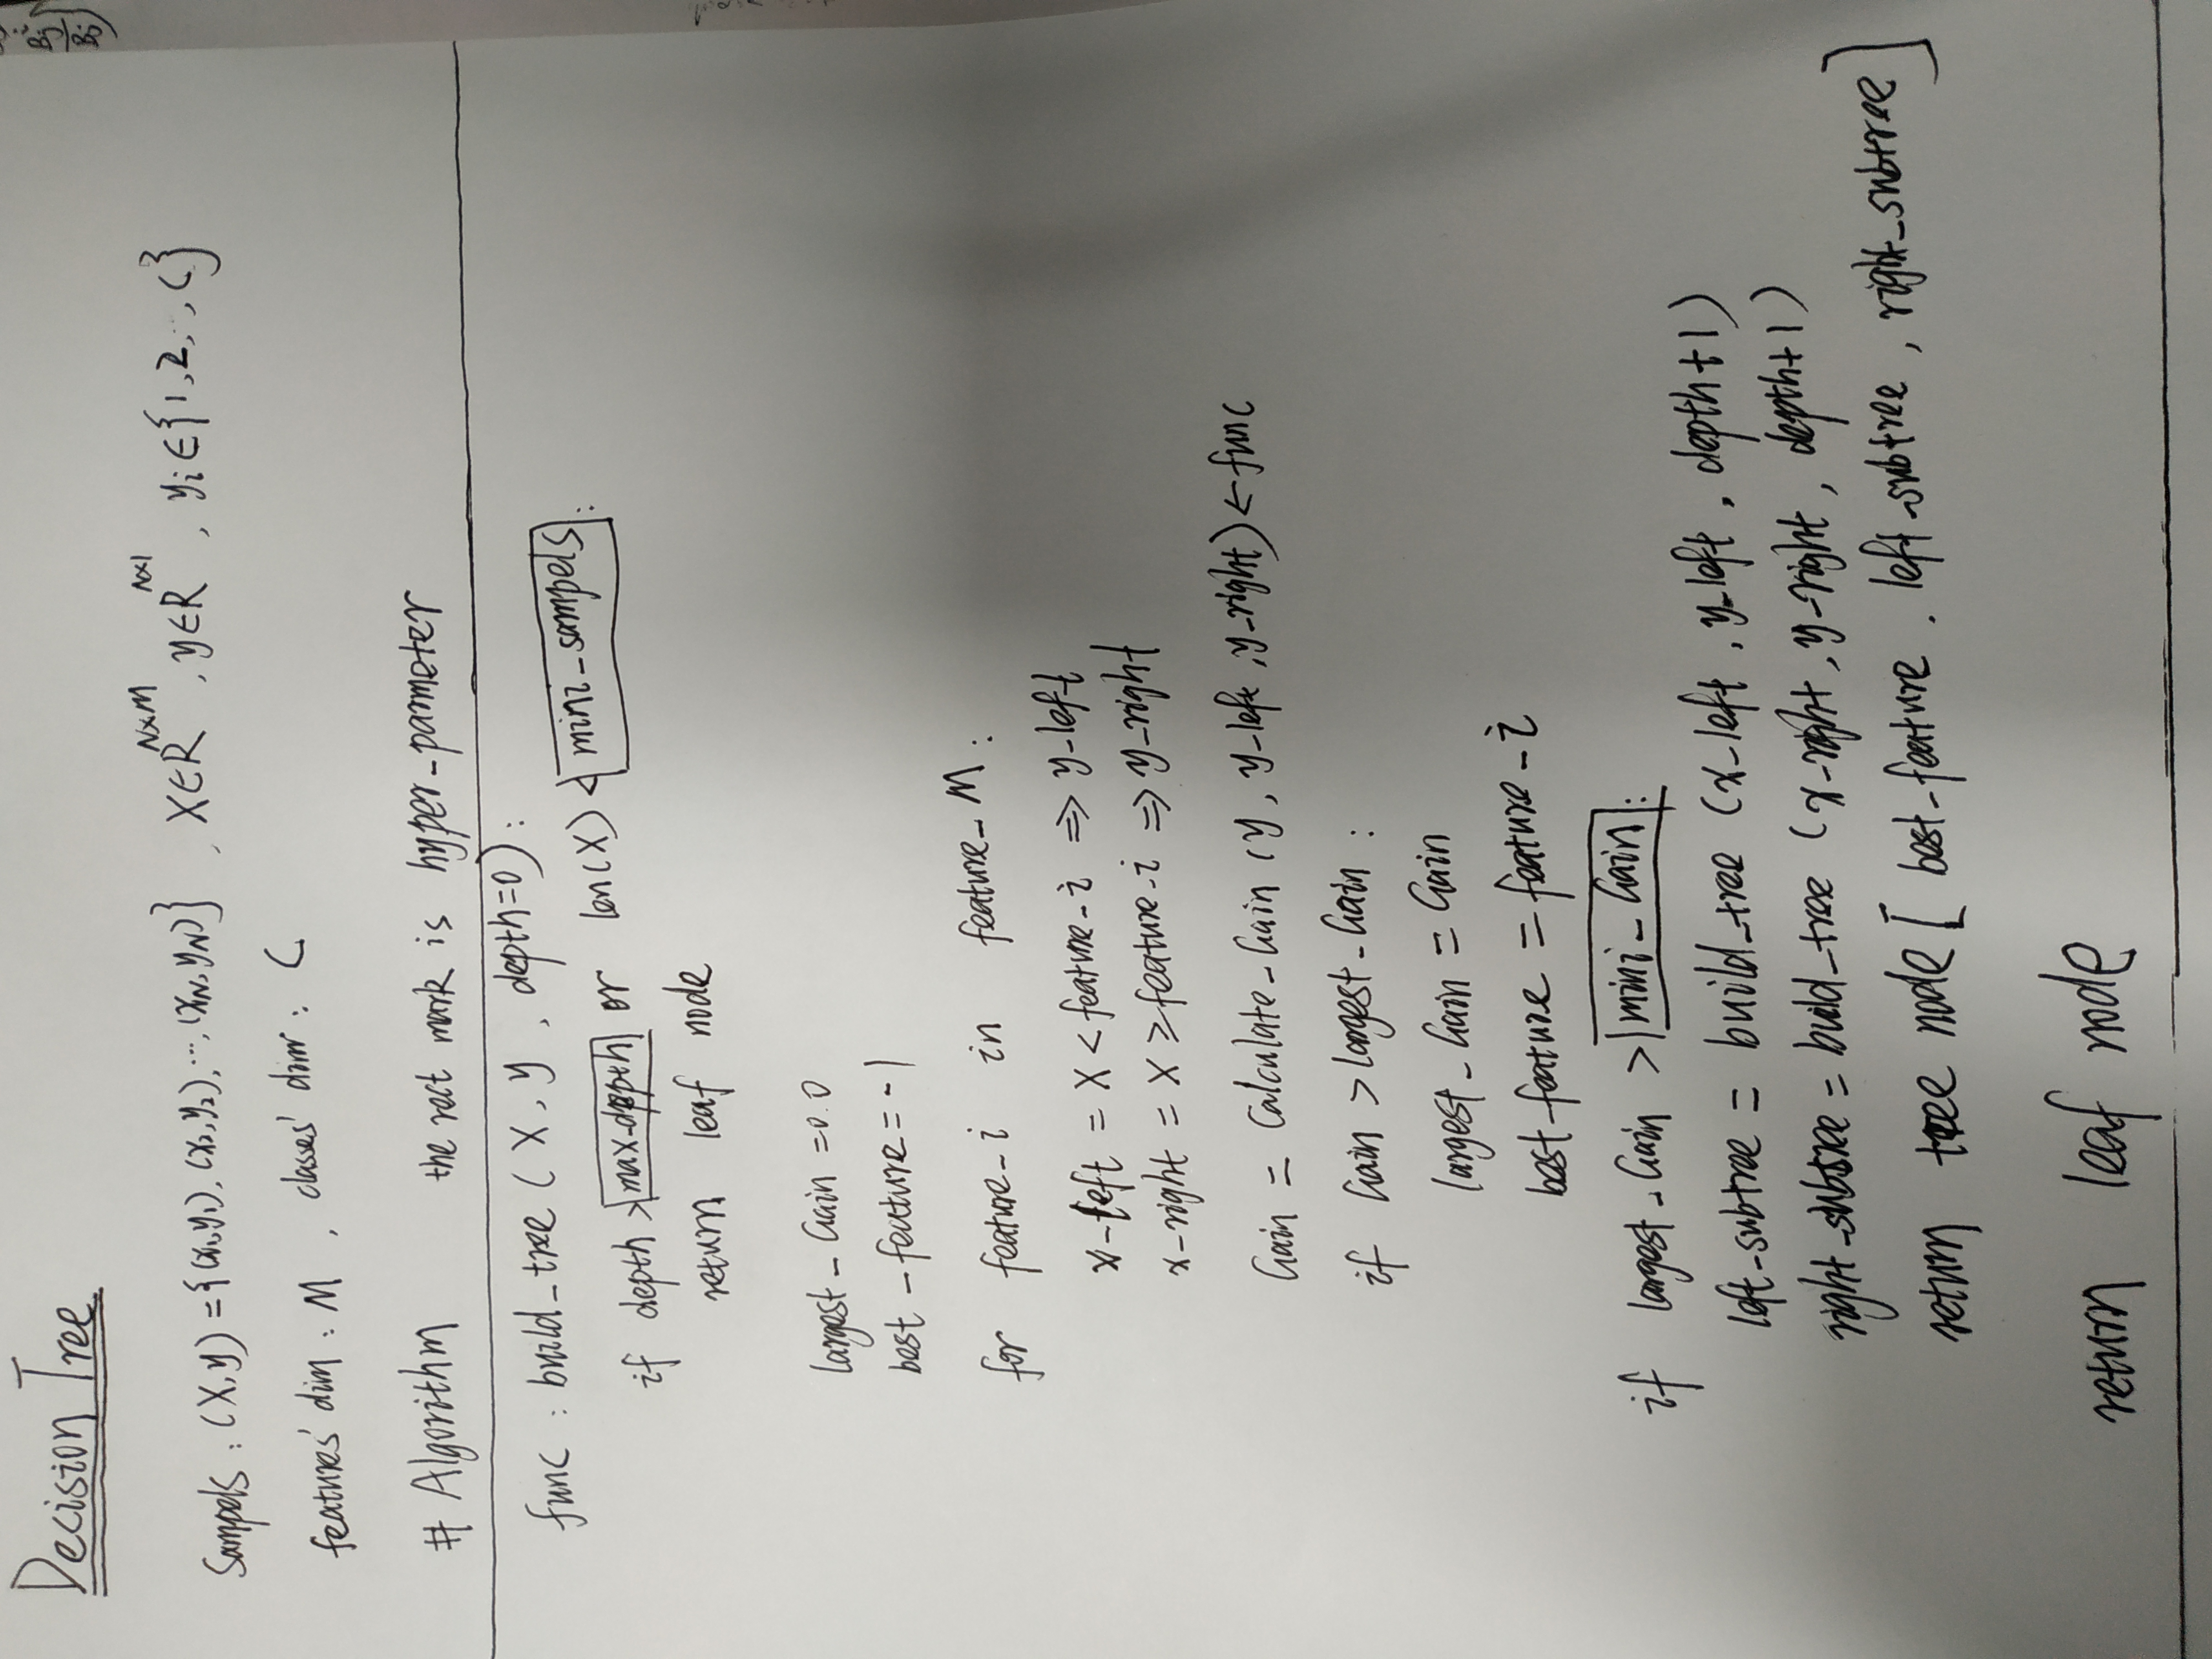 Decision Tree
Sampels : (X, y) = {(x₁, y₁), (x₂, y₂), ..., (x_N, y_N)} , X ∈ R^{N×M} , y ∈ R^{N×1} , y_i ∈ {1, 2, .., C}
features' dim : M , classes' dim : C
# Algorithm the rect mark is hyper_parmeter
func : build_tree ( X, y , depth=0 ) :
if depth > max_depth or len(X) < mini_sampels :
return leaf node
largest_Gain = 0.0
best_feature = -1
for feature_i in feature_M :
x_left = X < feature_i ⇒ y_left
x_right = X ≥ feature_i ⇒ y_right
Gain = Calculate_Gain (y, y_left, y_right) ← func
if Gain > largest_Gain :
largest_Gain = Gain
best_feature = feature_i
if largest_Gain > mini_Gain :
left_subtree = build_tree (x_left, y_left, depth+1)
right_subtree = build_tree (x_right, y_right, depth+1)
return tree node [ best_feature , left_subtree , right_subtree ]
return leaf node